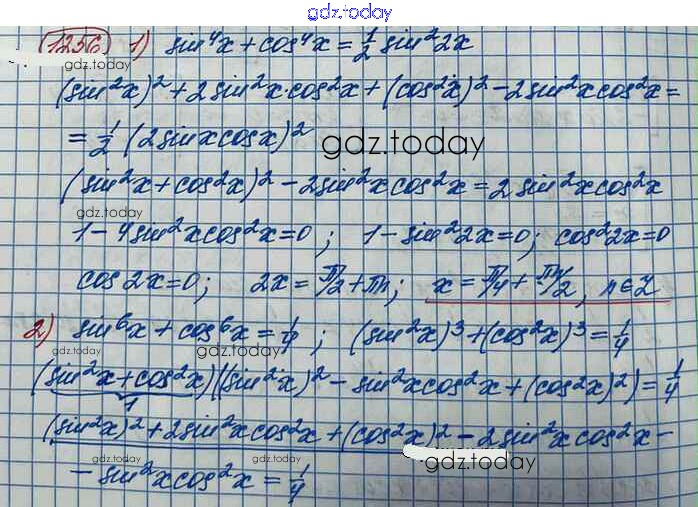 gdz.today
1256. 1) sin⁴x + cos⁴x = 1/2 sin²2x
gdz.today
(sin²x)² + 2sin²x·cos²x + (cos²x)² - 2sin²xcos²x =
= 1/2 (2sinxcosx)²
gdz.today
(sin²x + cos²x)² - 2sin²xcos²x = 2sin²xcos²x
gdz.today
1 - 4sin²xcos²x = 0; 1 - sin²2x = 0; cos²2x = 0
cos2x = 0; 2x = π/2 + πn; x = π/4 + πn/2, n∈Z
2) sin⁶x + cos⁶x = 1/4; (sin²x)³ + (cos²x)³ = 1/4
gdz.today gdz.today
(sin²x + cos²x)((sin²x)² - sin²xcos²x + (cos²x)²) = 1/4
1
(sin²x)² + 2sin²xcos²x + (cos²x)² - 2sin²xcos²x -
gdz.today gdz.today gdz.today
- sin²xcos²x = 1/4